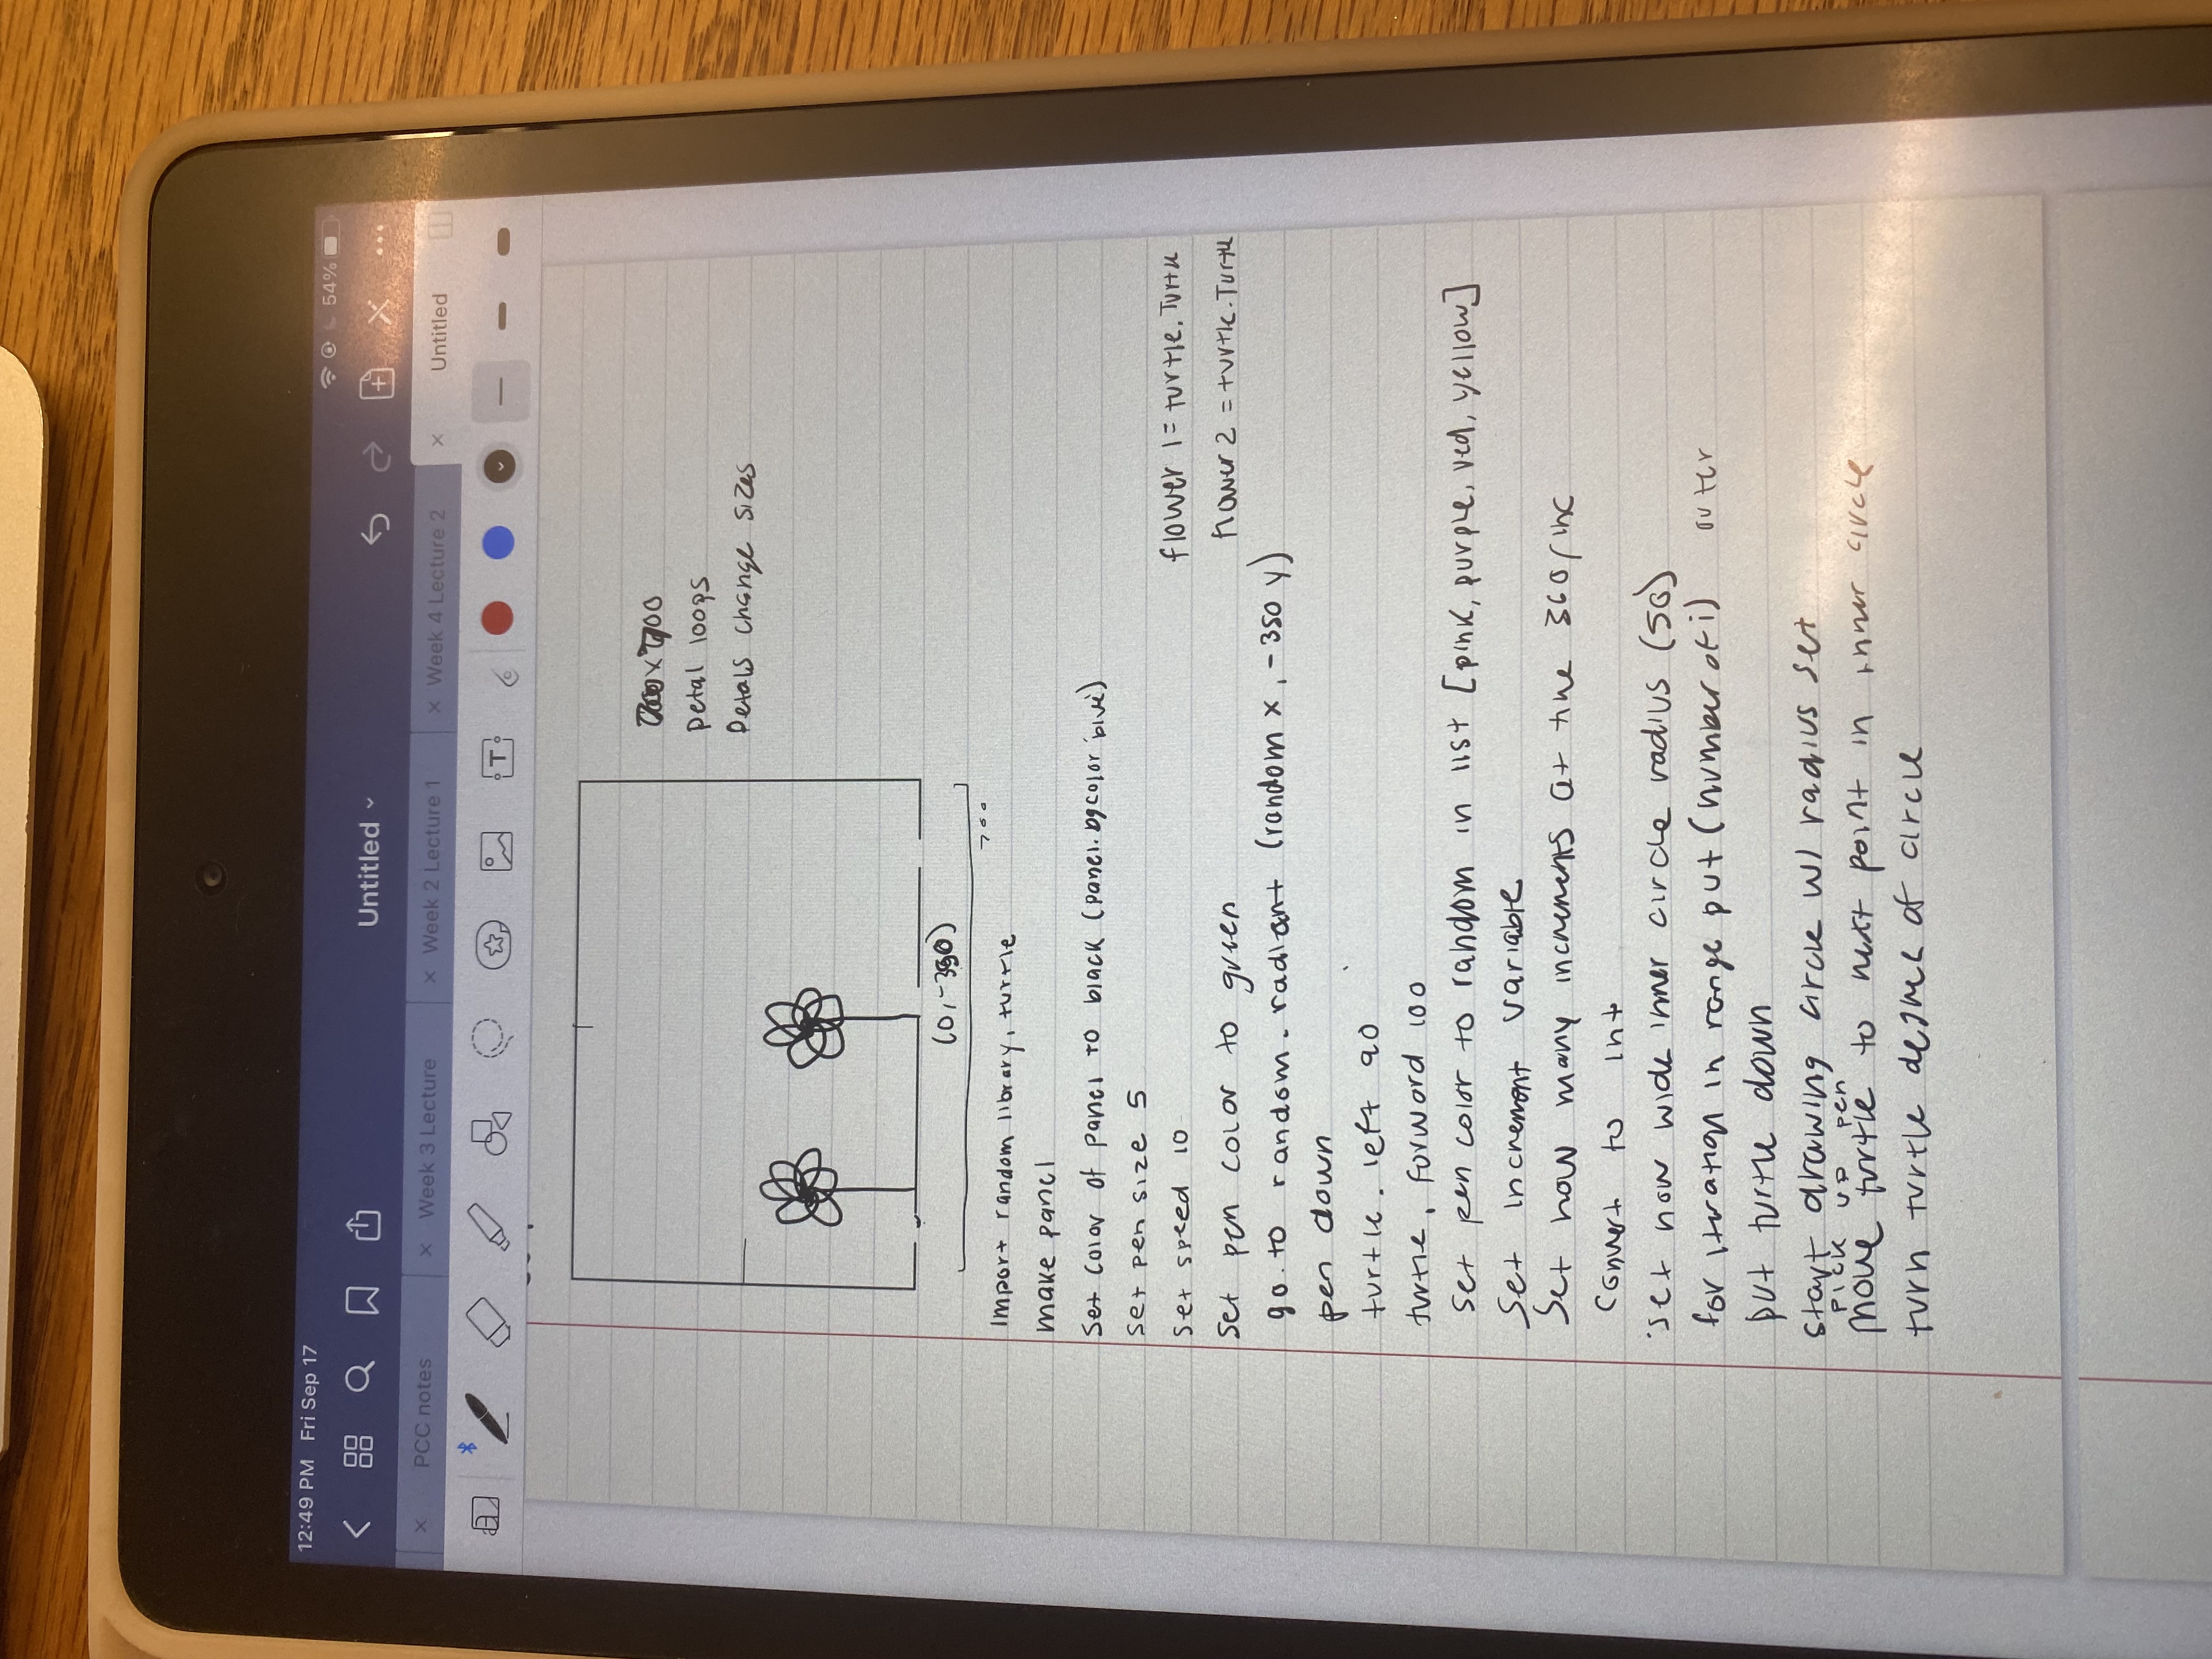 12:49 PM Fri Sep 17
54%
Untitled
PCC notes
Week 3 Lecture
Week 2 Lecture 1
Week 4 Lecture 2
Untitled
T
x700
petal loops
Petals change sizes
(0,-350)
700
Import random library, turtle
make panel
Set color of panel to black (panel.bgcolor 'blue')
set pen size 5
set speed 10
flower 1 = turtle.Turtle
set pen color to green
flower 2 = turtle.Turtle
go.to random.radiant (random x, -350 y)
pen down
turtle. left 90
turtle. forward 100
set pen color to random in list [pink, purple, red, yellow]
Set increment variable
Set how many increments at the 360/inc
Convert to int
set how wide inner circle radius (50)
for iteration in range put (number of i) outer
put turtle down
start drawing circle w/ radius set
pick up pen
move turtle to next point in inner circle
turn turtle degree of circle